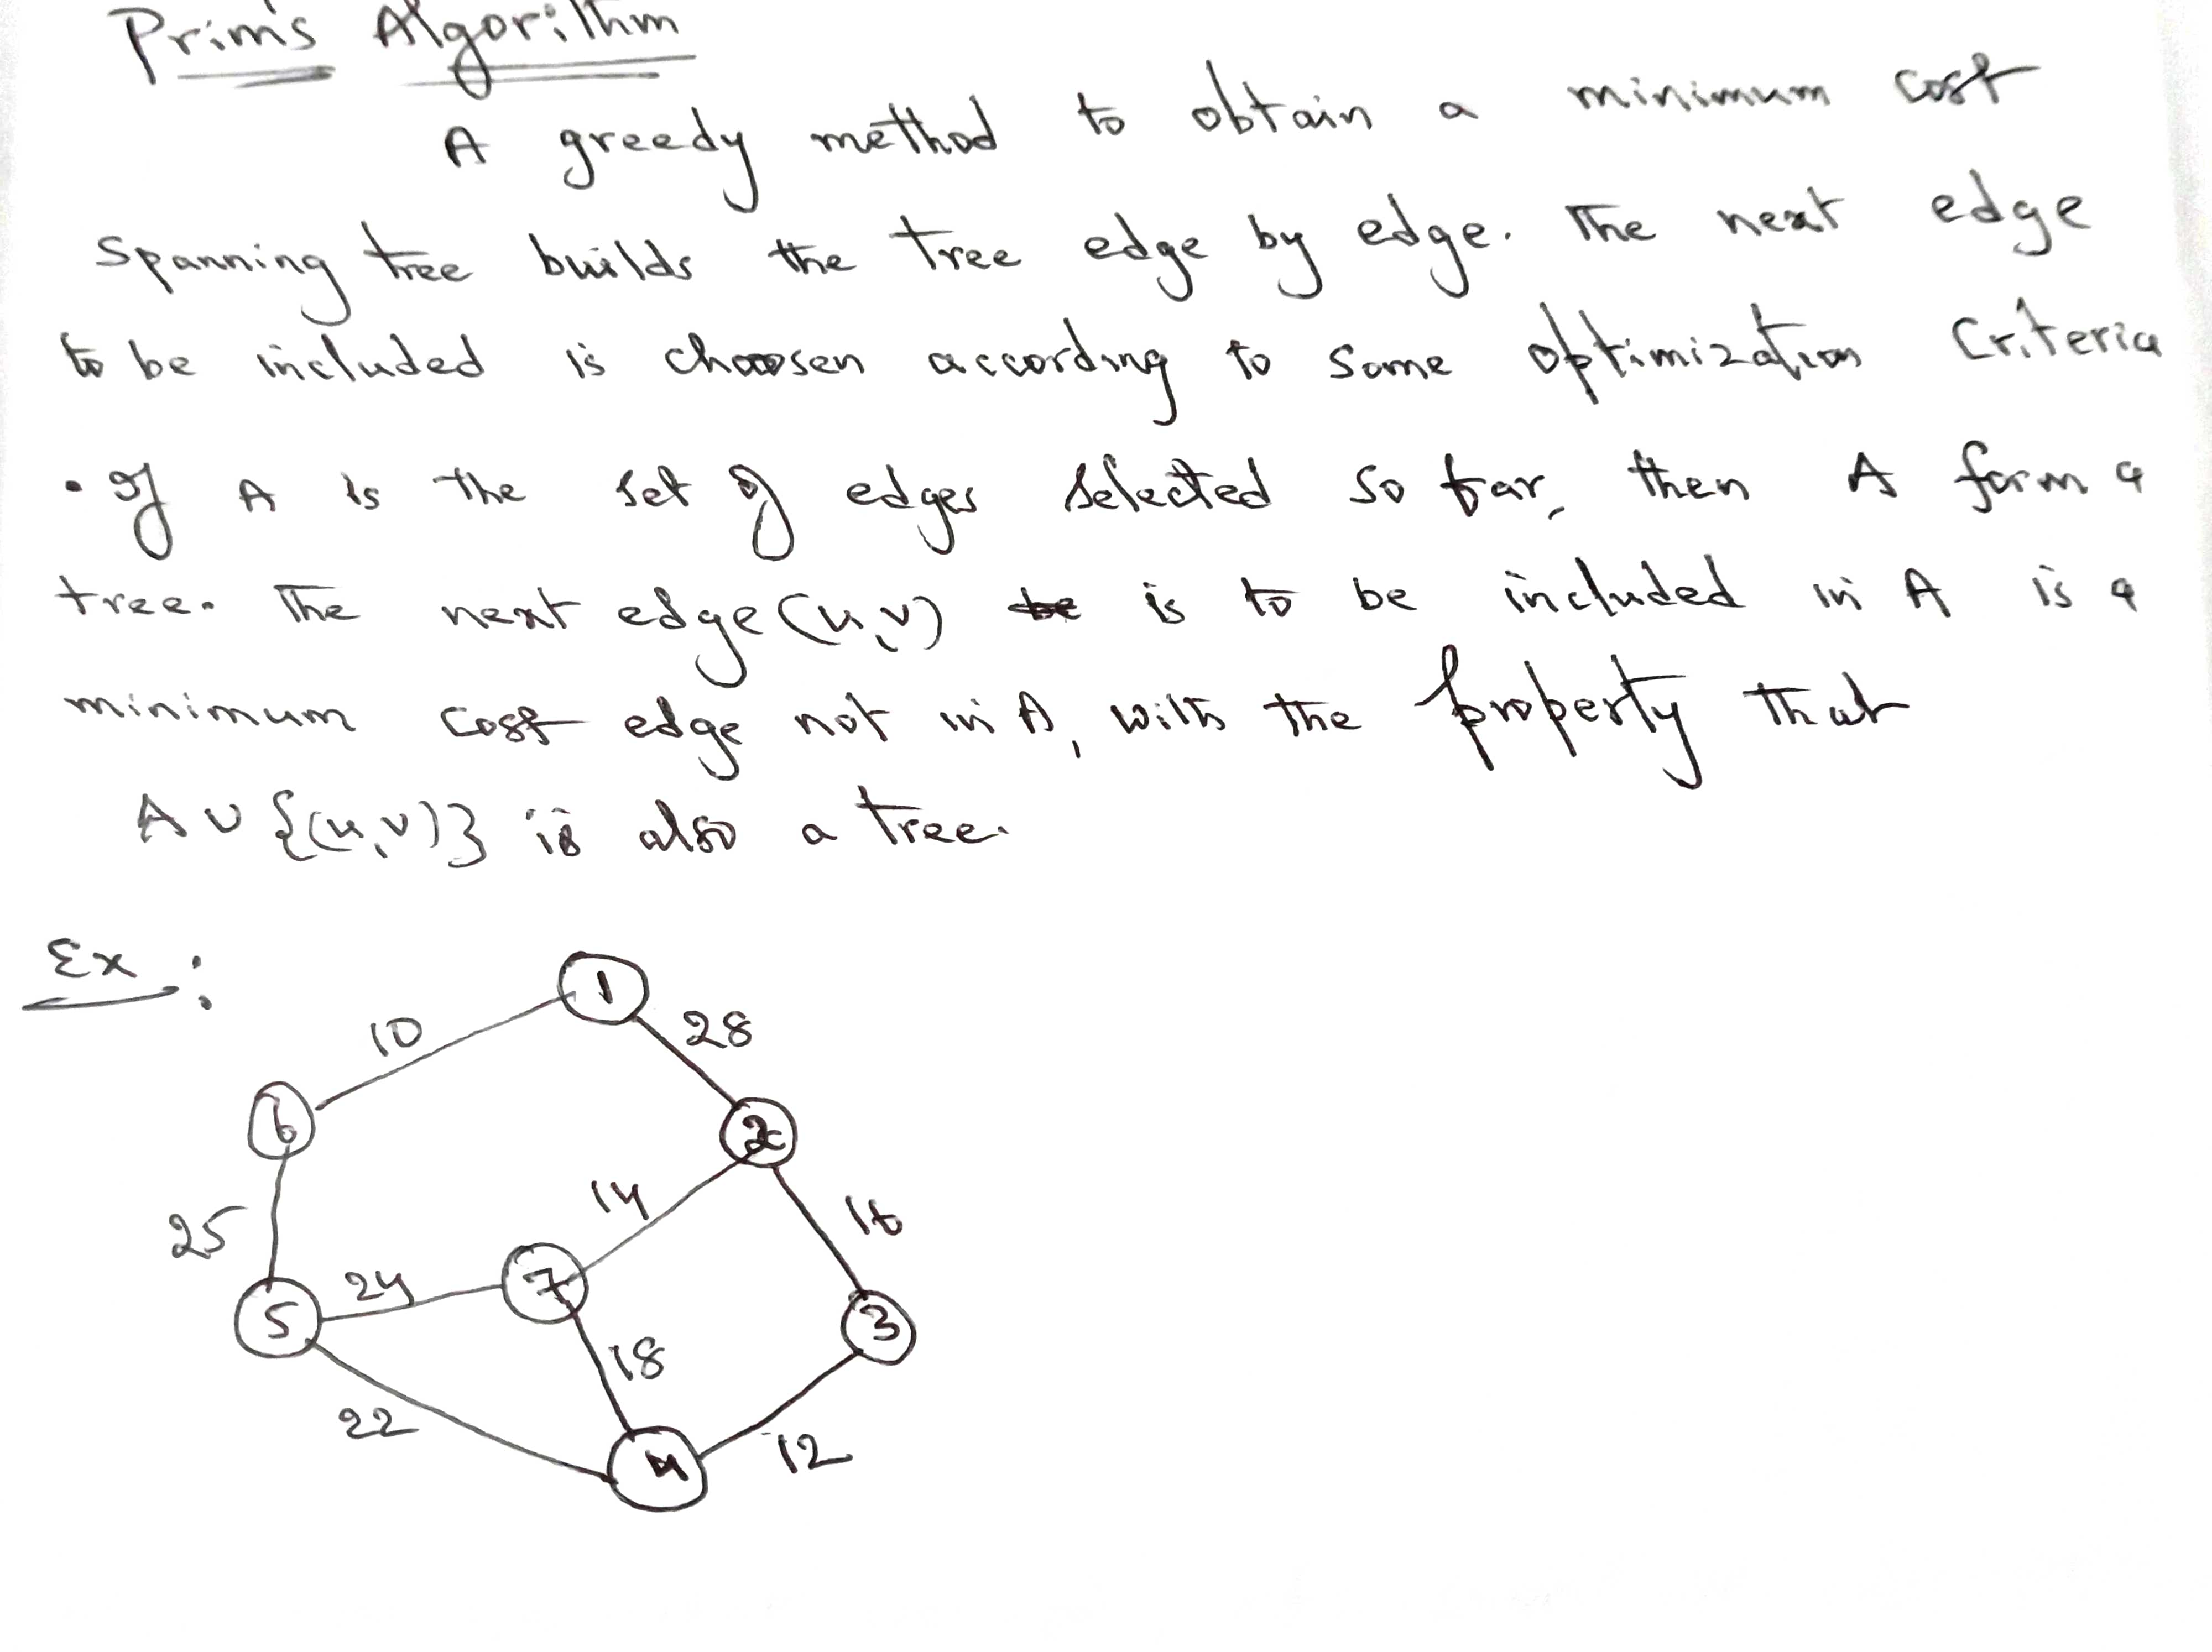 Prim's Algorithm
A greedy method to obtain a minimum cost
spanning tree builds the tree edge by edge. The next edge
to be included is choosen according to some optimization criteria
• If A is the set of edges selected so far, then A form a
tree. The next edge (u,v) is to be included in A is a
minimum cost edge not in A, with the property that
A ∪ {(u,v)} is also a tree.
Ex :
1
10
28
6
2
14
16
25
7
24
5
3
18
22
4
12